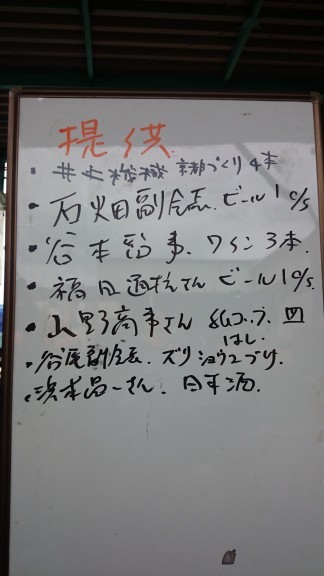 提供
・井上機械 京都づくり4本
・石畑副会長. ビール1c/s
・谷本幹事. ワイン3本.
・福田通托さん ビール1c/s.
・山野商事さん 紙コップ. 皿
はし.
・谷底副会長. ズリショウユづけ.
・浜本昌一さん. 日本酒.